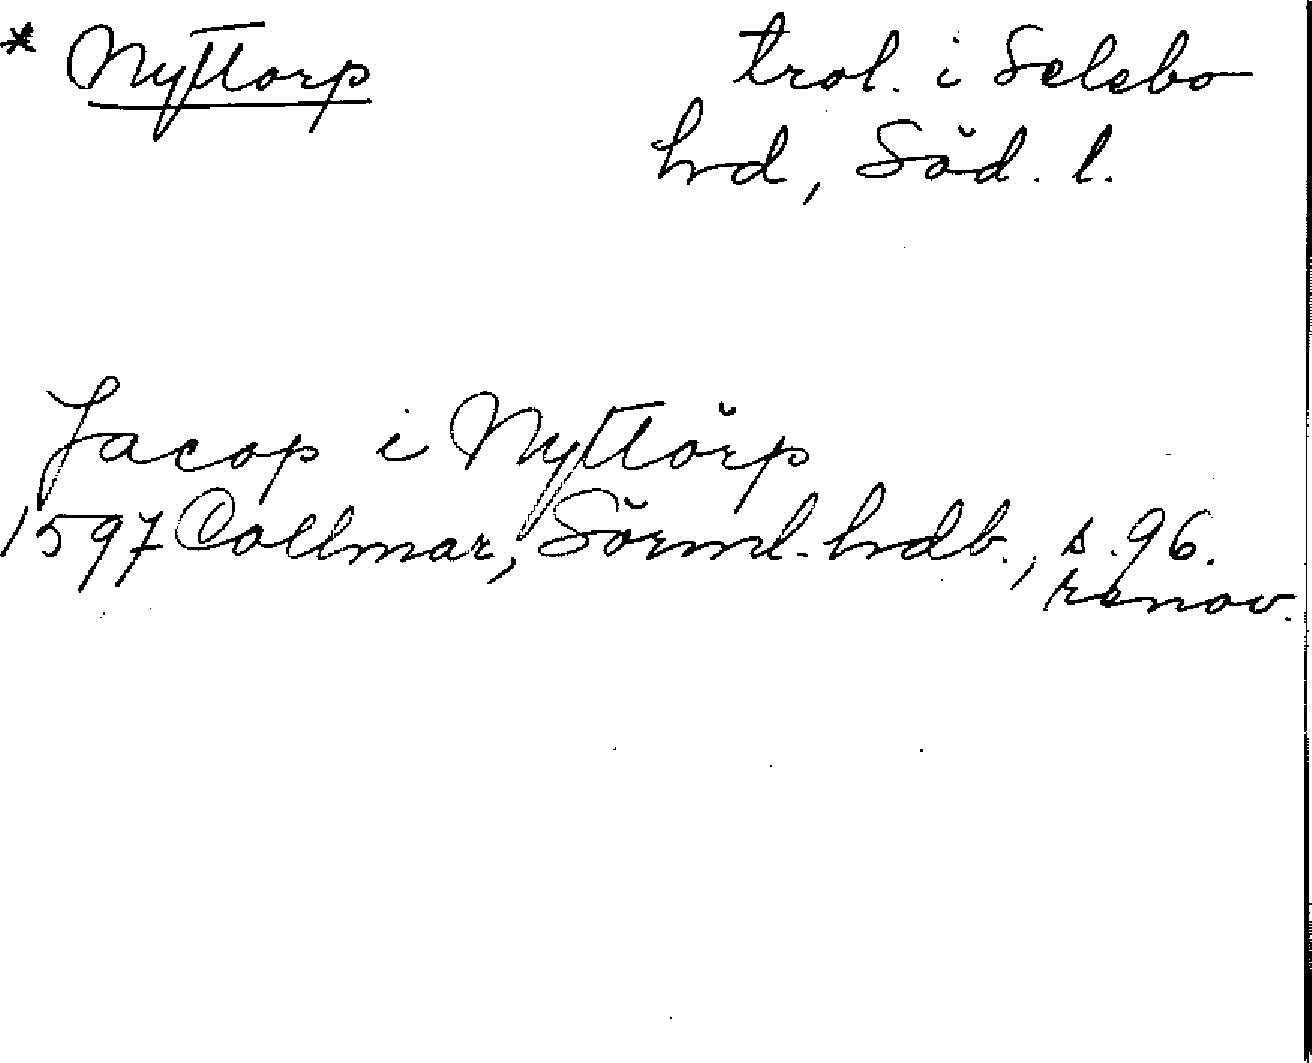 * Nyttorp
trol. i Selebo
hrd, Söd. l.
Jacop i Nyttörp
1597 Collmar, Sörml. hrdb., s. 96.
renov.